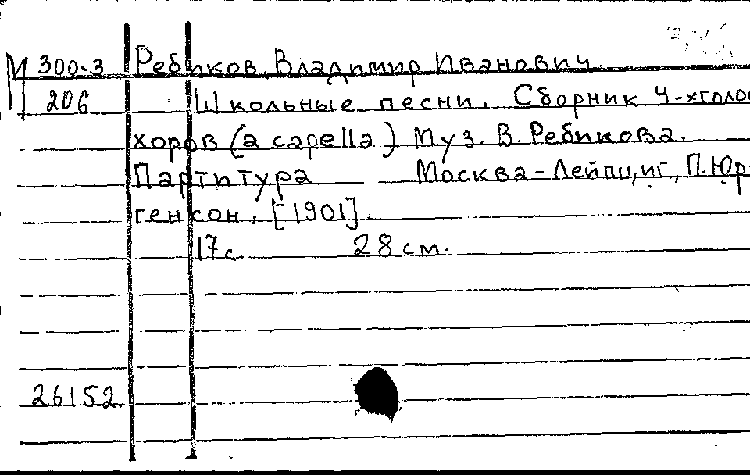 М 300-3 Ребиков, Владимир Иванович
206 Школьные песни. Сборник 4-хголос
хоров (a capella) Муз. В. Ребикова.
Партитура Москва-Лейпциг, П. Юр-
генсон, [1901].
17 с. 28 см.
26152